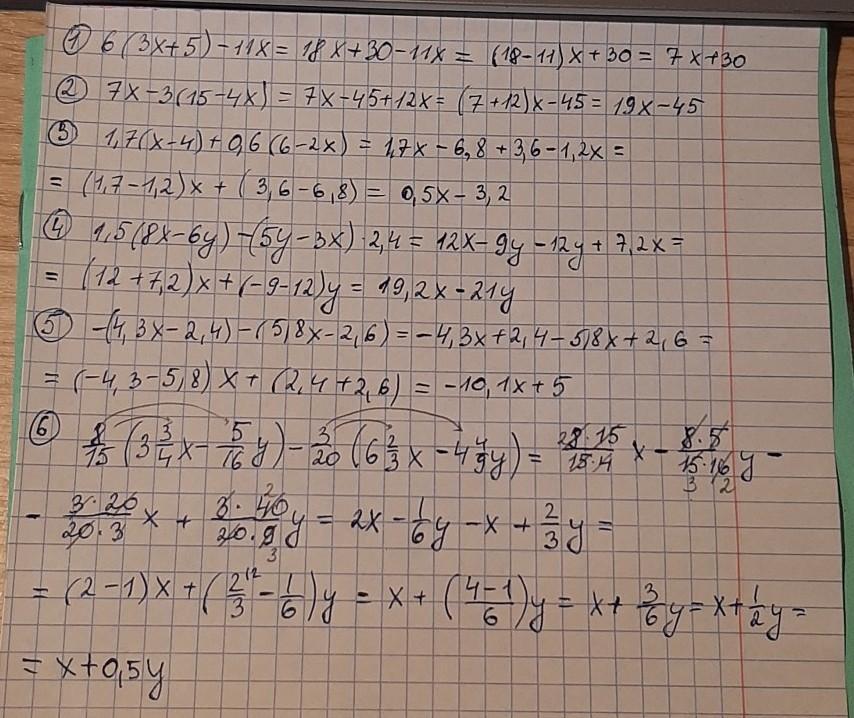 ① 6(3x+5)-11x = 18x+30-11x = (18-11)x+30 = 7x+30
② 7x-3(15-4x) = 7x-45+12x = (7+12)x-45 = 19x-45
③ 1,7(x-4)+0,6(6-2x) = 1,7x-6,8+3,6-1,2x =
= (1,7-1,2)x + (3,6-6,8) = 0,5x-3,2
④ 1,5(8x-6y)-(5y-3x)·2,4 = 12x-9y-12y+7,2x =
= (12+7,2)x+(-9-12)y = 19,2x-21y
⑤ -(4,3x-2,4)-(5,8x-2,6) = -4,3x+2,4-5,8x+2,6 =
= (-4,3-5,8)x + (2,4+2,6) = -10,1x+5
⑥ 8/15 (3 3/4 x - 5/16 y) - 3/20 (6 2/3 x - 4 4/9 y) = 8·15/15·4 x - 8·5/15·16 y -
- 3·20/20·3 x + 3·40/20·9 y = 2x - 1/6 y - x + 2/3 y =
= (2-1)x + (2/3 - 1/6)y = x + (4-1/6)y = x + 3/6 y = x + 1/2 y =
= x+0,5y